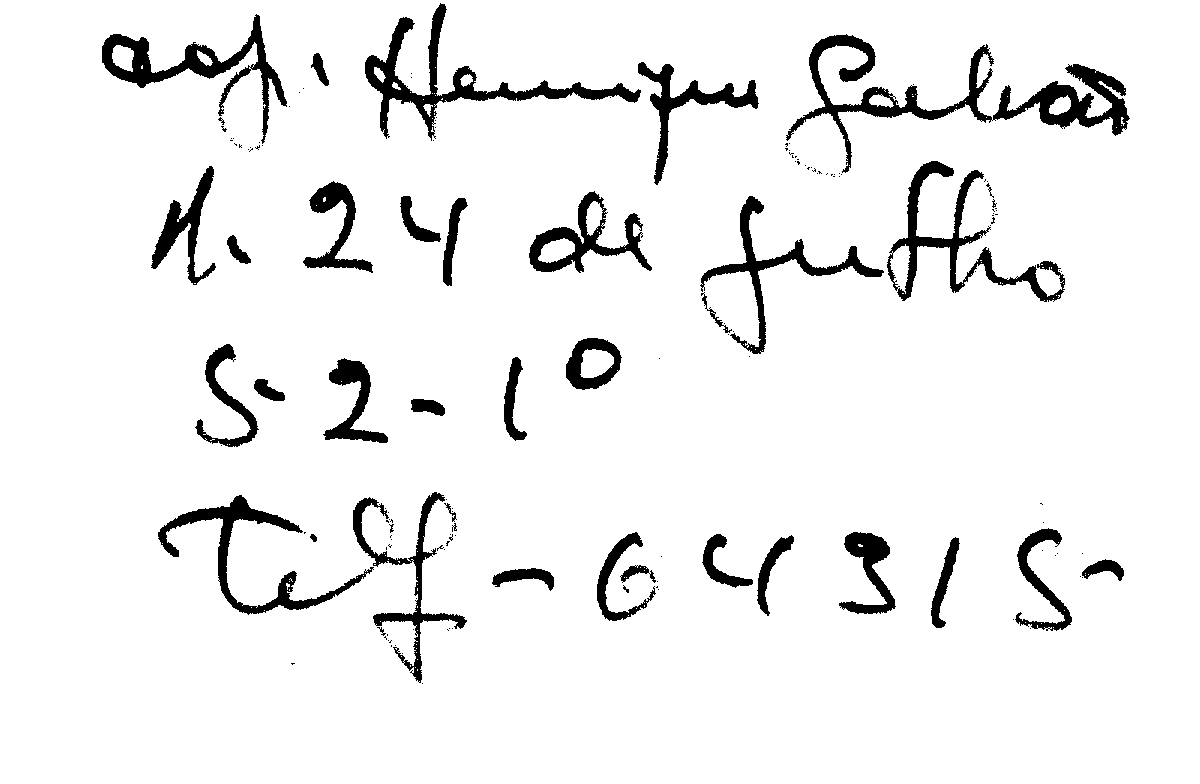 Henrique Galvão
R. 24 de Julho
52-1º
Telf - 64315